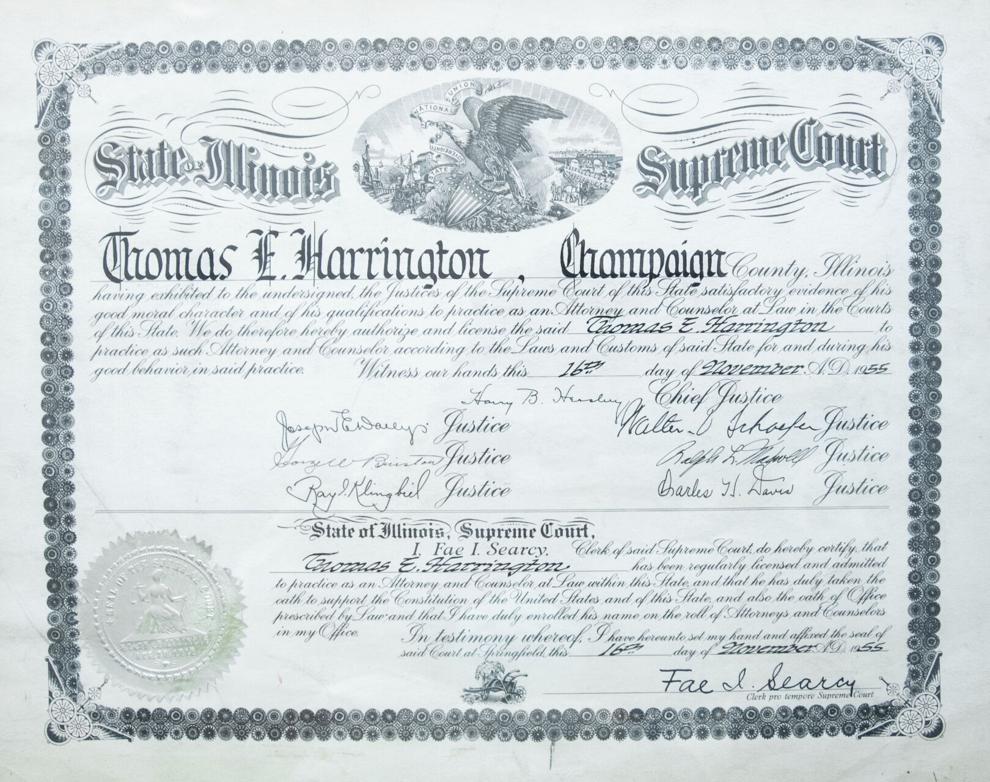 State of Illinois Supreme Court
NATIONAL UNION
Thomas E. Harrington, Champaign County, Illinois
having exhibited to the undersigned, the Justices of the Supreme Court of this State, satisfactory evidence of his
good moral character and of his qualifications to practice as an Attorney and Counselor at Law in the Courts
of this State. We do therefore hereby authorize and license the said Thomas E. Harrington to
practice as such Attorney and Counselor according to the Laws and Customs of said State for, and during his
good behavior, in said practice. Witness our hands this 16th day of November A.D. 1955
Harry B. Hershey Chief Justice
Joseph E. Daily Justice Walter V. Schaefer Justice
George W. Bristow Justice Ralph L. Maxwell Justice
Ray I. Klingbiel Justice Charles H. Davis Justice
State of Illinois, Supreme Court,
I, Fae I. Searcy, Clerk of said Supreme Court, do hereby certify, that
Thomas E. Harrington has been regularly licensed and admitted
to practice as an Attorney and Counselor at Law within this State, and that he has duly taken the
oath to support the Constitution of the United States and of this State, and also the oath of Office
prescribed by Law and that I have duly enrolled his name on the roll of Attorneys and Counselors
in my Office. In testimony whereof, I have hereunto set my hand and affixed the seal of
said Court at Springfield, this 16th day of November A.D. 1955
Fae I. Searcy
Clerk pro tempore Supreme Court